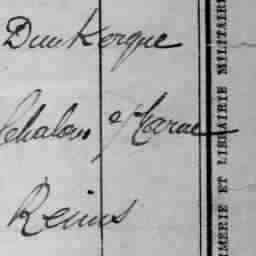 Dunkerque
Chalon s/ Marne
Reims
IMERIE ET LIBRAIRIE MILITAIRE